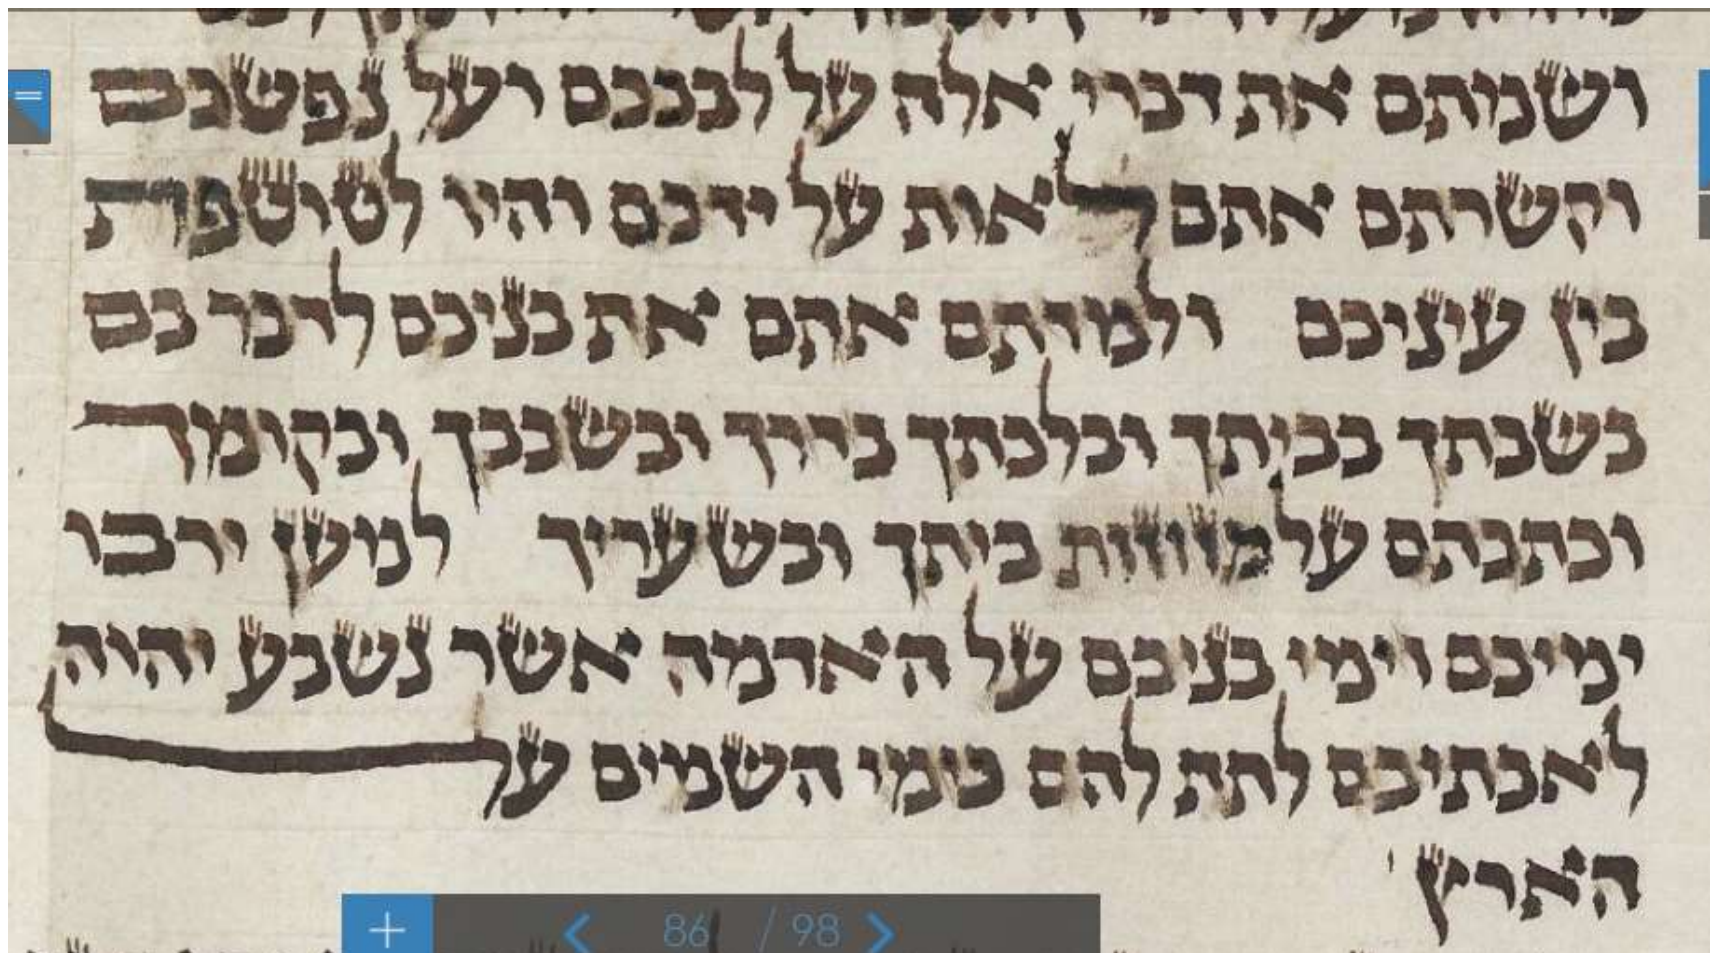 ושמתם את דברי אלה על לבבכם ועל נפשכם
וקשרתם אתם לאות על ידכם והיו לטוטפת
בין עיניכם ולמדתם אתם את בניכם לדבר בם
בשבתך בביתך ובלכתך בדרך ובשכבך ובקומך
וכתבתם על מזוזות ביתך ובשעריך למען ירבו
ימיכם וימי בניכם על האדמה אשר נשבע יהוה
לאבתיכם לתת להם כימי השמים על
הארץ
86 / 98